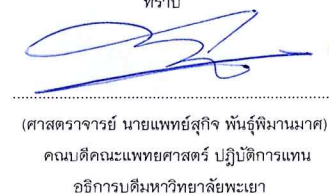 ทราบ
(ศาสตราจารย์ นายแพทย์สุกิจ พันธุ์พิมานมาศ)
คณบดีคณะแพทยศาสตร์ ปฏิบัติการแทน
อธิการบดีมหาวิทยาลัยพะเยา